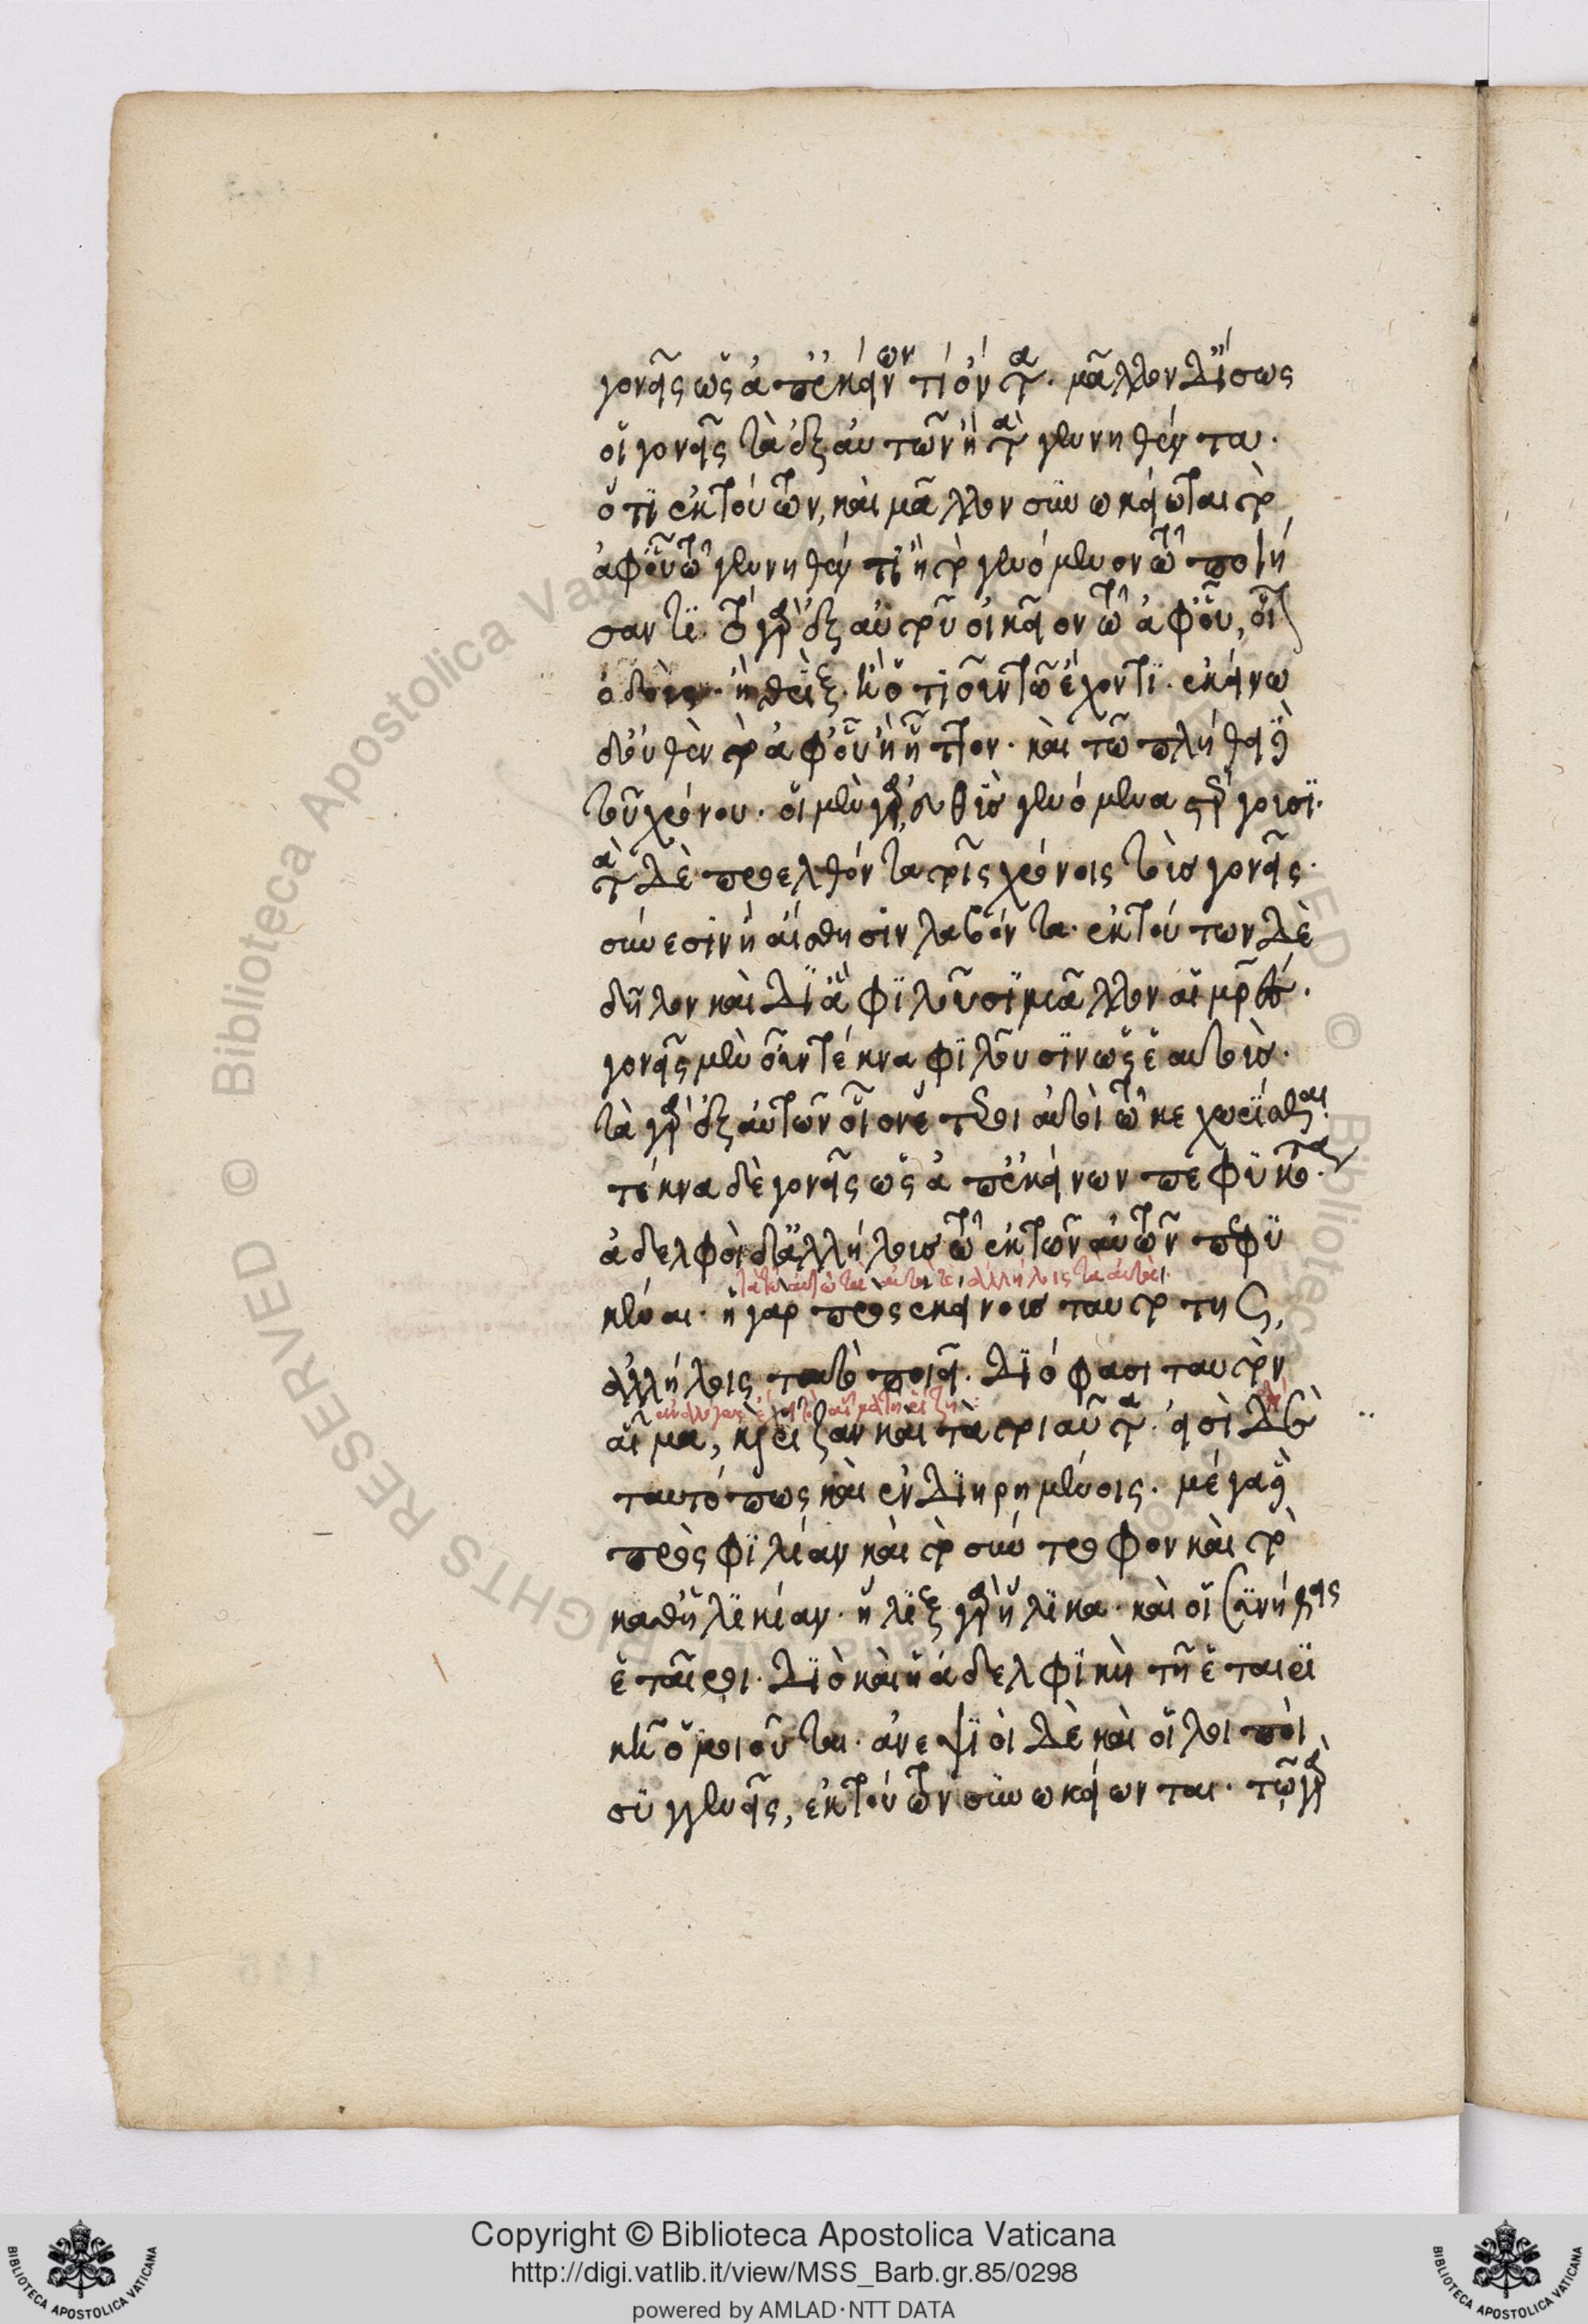 γονεῖς ὡς ἀπ' ἐκείνων τι ὄντα. μᾶλλον δ' ἴσασιν
οἱ γονεῖς τὰ ἐξ αὐτῶν ἢ τὰ γεννηθέντα
ὅτι ἐκ τούτων, καὶ μᾶλλον συνῳκείωται τὸ
ἀφ' οὗ τῷ γεννηθέντι ἢ τὸ γενόμενον τῷ ποιή
σαντι. τὸ γὰρ ἐξ αὐτοῦ οἰκεῖον τῷ ἀφ' οὗ, οἷον
ὀδοὺς ἢ θρὶξ ἢ ὁτιοῦν τῷ ἔχοντι. ἐκείνῳ
δ' οὐθὲν τὸ ἀφ' οὗ ἢ ἧττον. καὶ τῷ πλήθει δὲ
τοῦ χρόνου. οἱ μὲν γὰρ εὐθὺς γενόμενα στέργουσι.
τὰ δὲ προελθόντα τοῖς χρόνοις τοὺς γονεῖς.
σύνεσιν ἢ αἴσθησιν λαβόντα. ἐκ τούτων δὲ
δῆλον καὶ δι' ἃ φιλοῦσι μᾶλλον αἱ μητέρες.
γονεῖς μὲν οὖν τέκνα φιλοῦσιν ὡς ἑαυτούς.
τὰ γὰρ ἐξ αὐτῶν οἷον ἕτεροι αὐτοὶ τῷ κεχωρίσθαι.
τέκνα δὲ γονεῖς ὡς ἀπ' ἐκείνων πεφυκότα.
ἀδελφοὶ δ' ἀλλήλους τῷ ἐκ τῶν αὐτῶν πεφυ
κέναι. ἡ γὰρ πρὸς ἐκεῖνα ταυτότης
ἀλλήλοις ταὐτὸ ποιεῖ. διό φασι ταυτὸν
αἷμα, καὶ ῥίζαν καὶ τὰ τοιαῦτα. εἰσὶ δὴ
ταυτό πως καὶ ἐν διῃρημένοις. μέγα δὲ
πρὸς φιλίαν καὶ τὸ σύντροφον καὶ τὸ
καθ' ἡλικίαν. ἧλιξ γὰρ ἥλικα. καὶ οἱ συνήθεις
ἑταῖροι. διὸ καὶ ἡ ἀδελφικὴ τῇ ἑταιρι
κῇ ὁμοιοῦται. ἀνεψιοὶ δὲ καὶ οἱ λοιποὶ
συγγενεῖς, ἐκ τούτων συνῳκείωνται. τῷ γὰρ
Copyright © Biblioteca Apostolica Vaticana
http://digi.vatlib.it/view/MSS_Barb.gr.85/0298
powered by AMLAD·NTT DATA